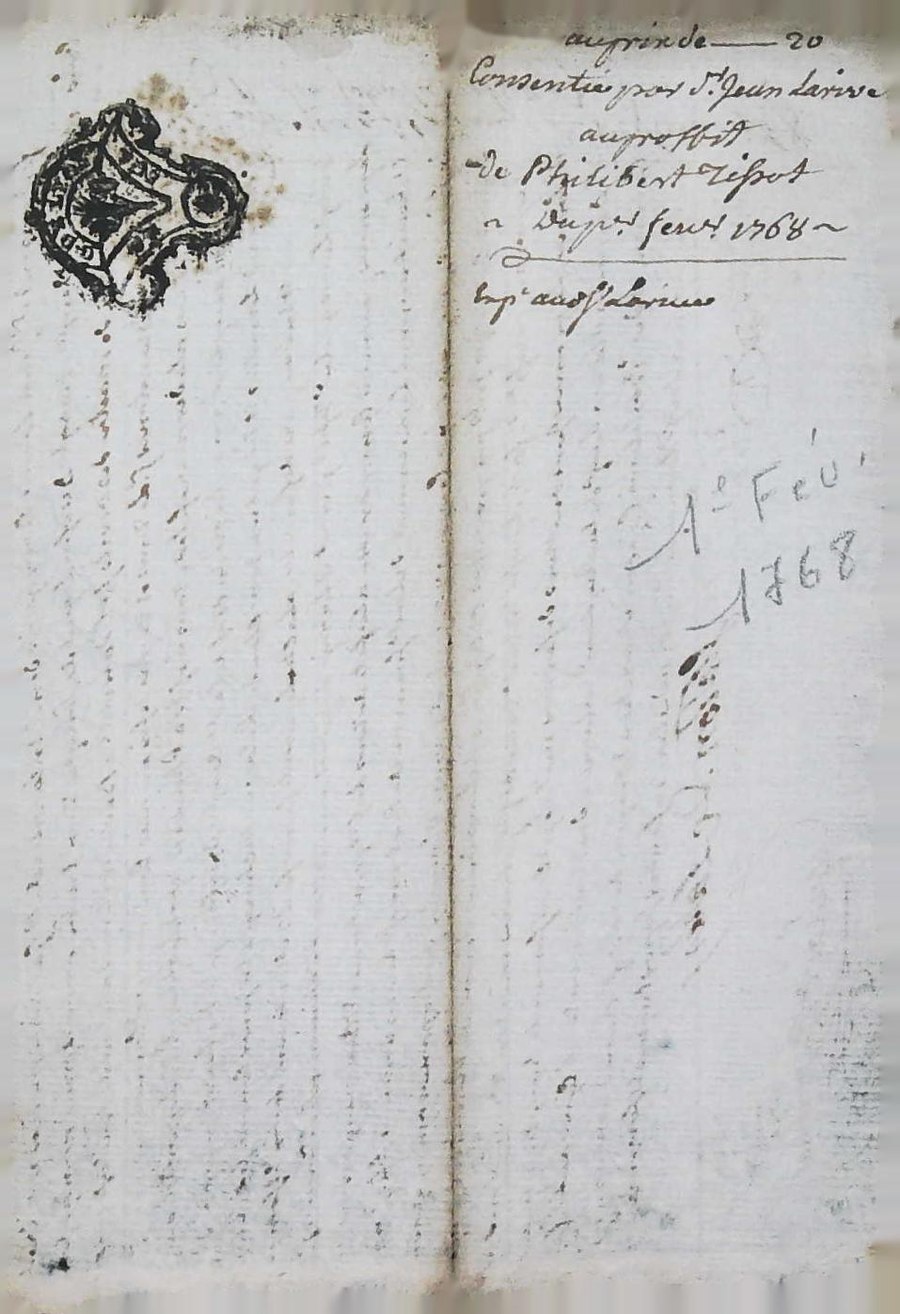 au prix de —— 20
Consentie par Sr. Jean Larive
au proffit
de Philibert Tissot
~ Du pr. fevr. 1768 ~
Larive
1º Fév.
1768